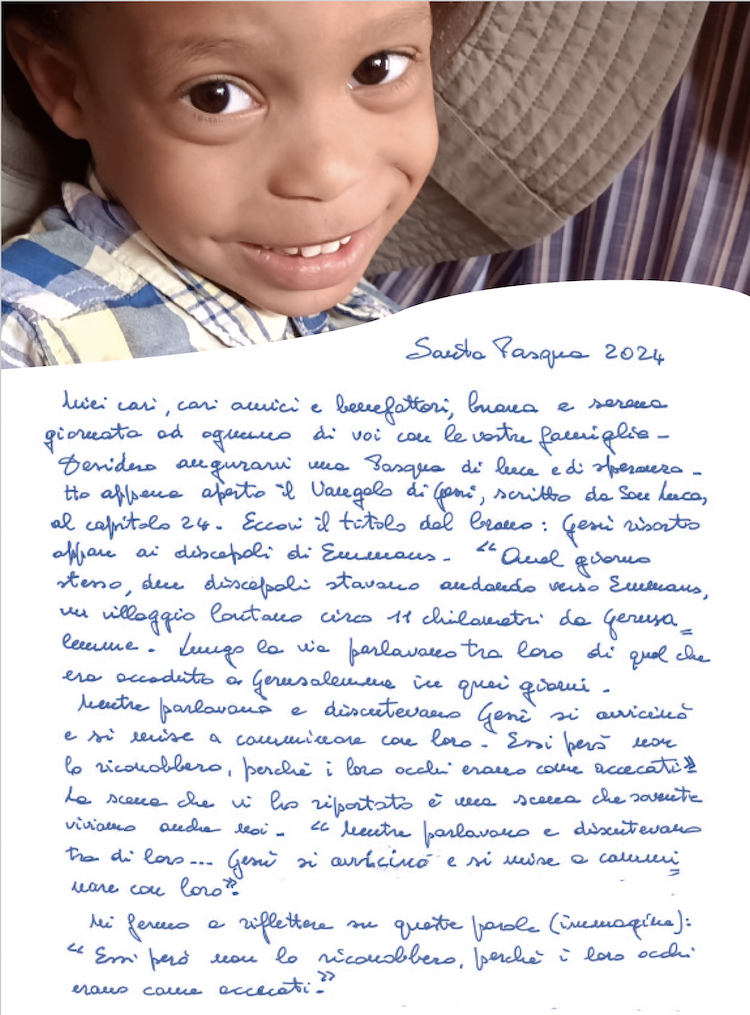 Santa Pasqua 2024
Miei cari, cari amici e benefattori, buona e serena
giornata ad ognuno di voi con le vostre famiglie -
Desidero augurarvi una Pasqua di luce e di speranza -
Ho appena aperto il Vangelo di Gesù, scritto da San Luca,
al capitolo 24. Eccovi il titolo del brano: Gesù risorto
appare ai discepoli di Emmaus - "Quel giorno
stesso, due discepoli stavano andando verso Emmaus,
un villaggio lontano circa 11 chilometri da Gerusa=
lemme. Lungo la via parlavano tra loro di quel che
era accaduto a Gerusalemme in quei giorni.
Mentre parlavano e discutevano Gesù si avvicinò
e si mise a camminare con loro - Essi però non
lo riconobbero, perchè i loro occhi erano come accecati"
La scena che vi ho riportato è una scena che sovente
viviamo anche noi - "Mentre parlavano e discutevano
tra di loro... Gesù si avvicinò e si mise a cammi=
nare con loro".
Mi fermo a riflettere su queste parole (immagine):
"Essi però non lo riconobbero, perchè i loro occhi
erano come accecati."